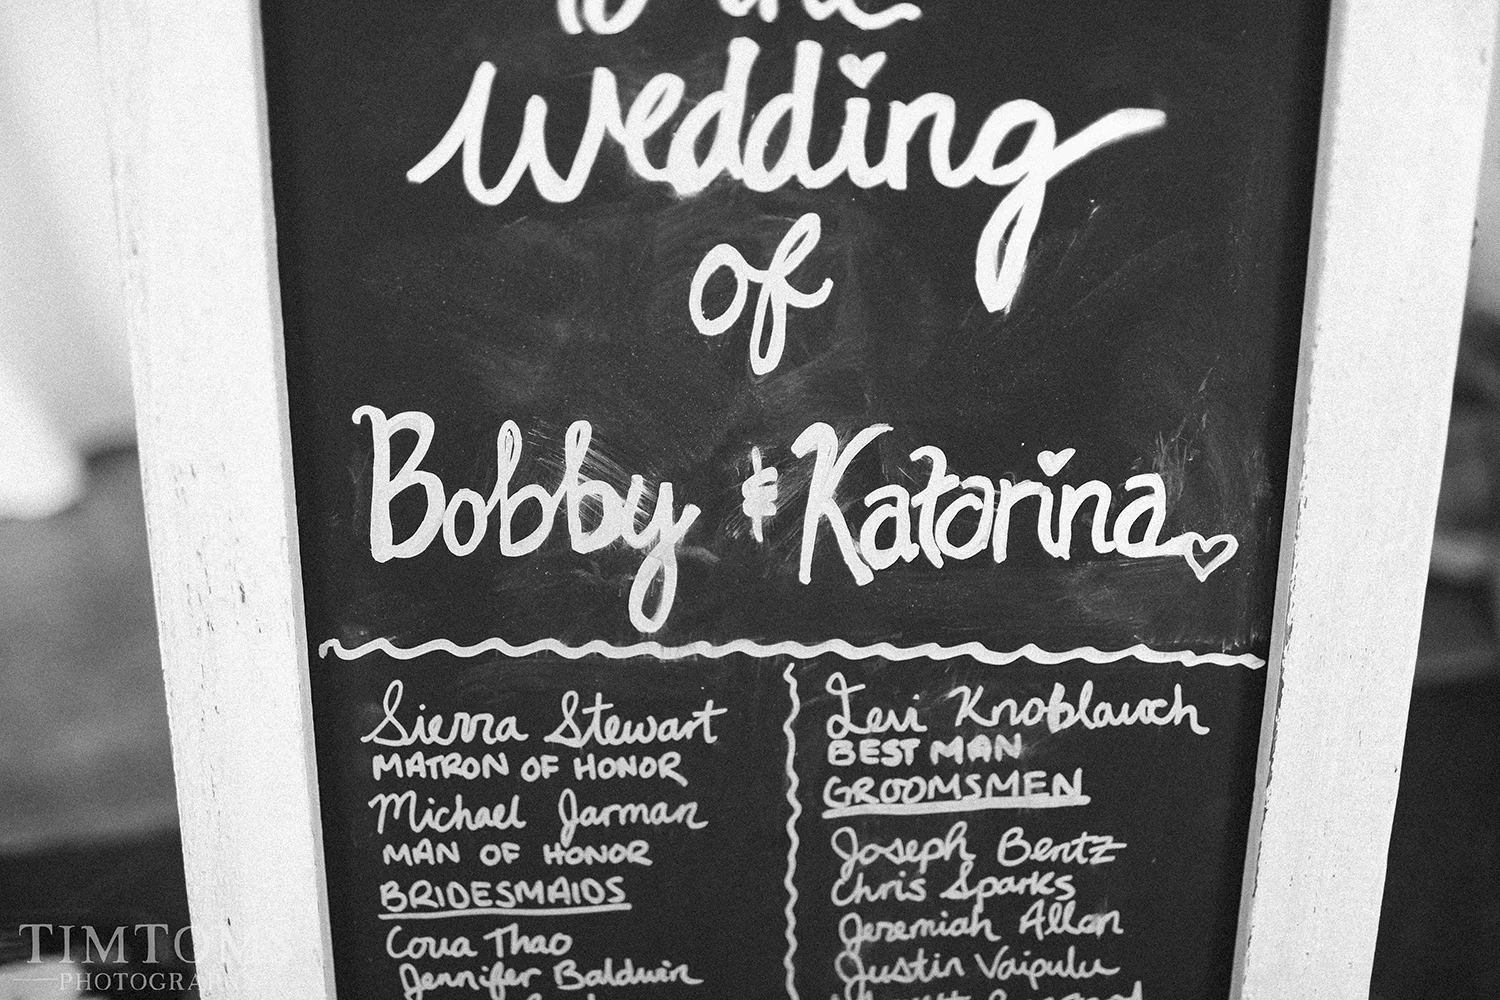 to the
wedding
of
Bobby & Katarina
Sierra Stewart
MATRON OF HONOR
Michael Jarman
MAN OF HONOR
BRIDESMAIDS
Coua Thao
Jennifer Baldwin
Levi Knoblauch
BEST MAN
GROOMSMEN
Joseph Bentz
Chris Sparks
Jeremiah Allan
Justin Vaipulu
TIMTOM
PHOTOGRAPHY